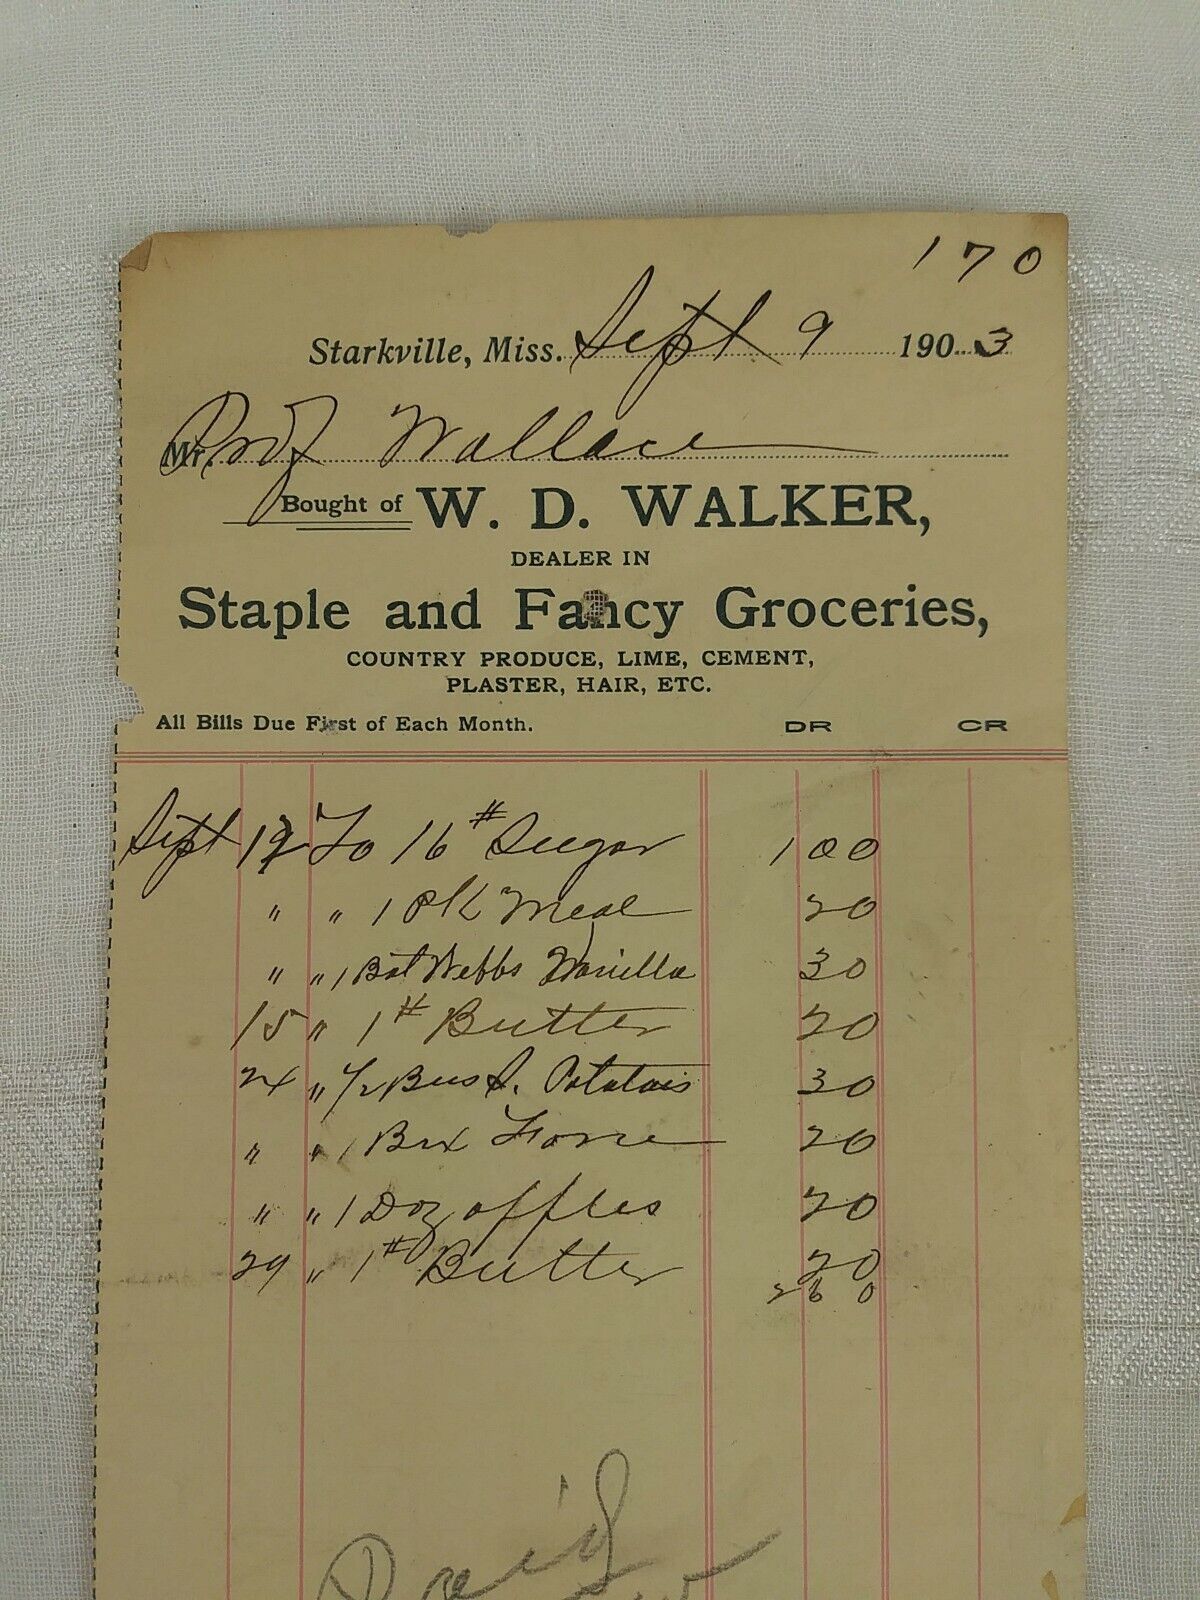 170
Starkville, Miss. Sept 9 1903
Mr. Prof Wallace
Bought of W. D. WALKER,
DEALER IN
Staple and Fancy Groceries,
COUNTRY PRODUCE, LIME, CEMENT,
PLASTER, HAIR, ETC.
All Bills Due First of Each Month. DR CR
Sept 12 To 16 # Sugar 1 00
" " 1 PK Meal 20
" " 1 Bot Webbs Vanilla 30
15 " 1 # Butter 20
24 " 1/2 Bus S. Potatoes 30
" " 1 Box 20
" " 1 Doz apples 20
29 " 1 # Butter 20
2 60
Paid